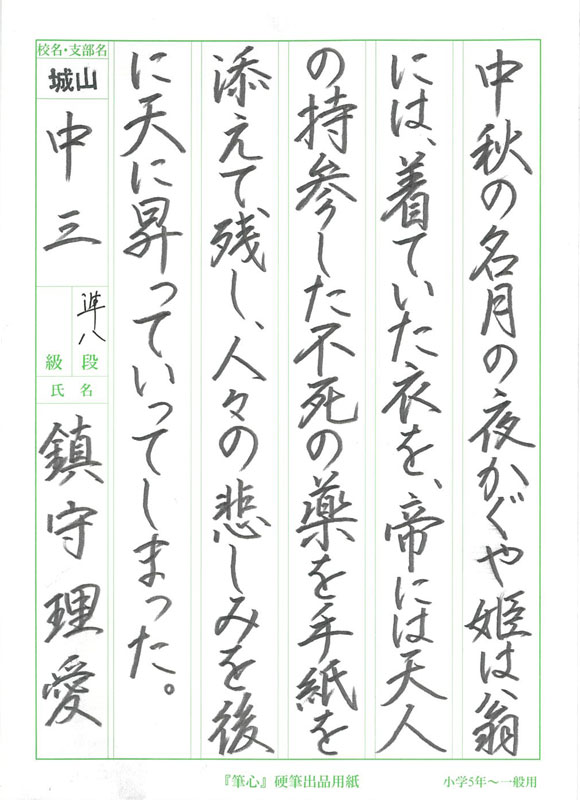 中秋の名月の夜かぐや姫は、翁
には、着ていた衣を、帝には天人
の持参した不死の薬を手紙を
添えて、残し、人々の悲しみを後
に天に昇っていってしまった。
校名・支部名
城山
中三
準八
段
級
氏名
鎮守理愛
『筆心』硬筆出品用紙
小学5年〜一般用